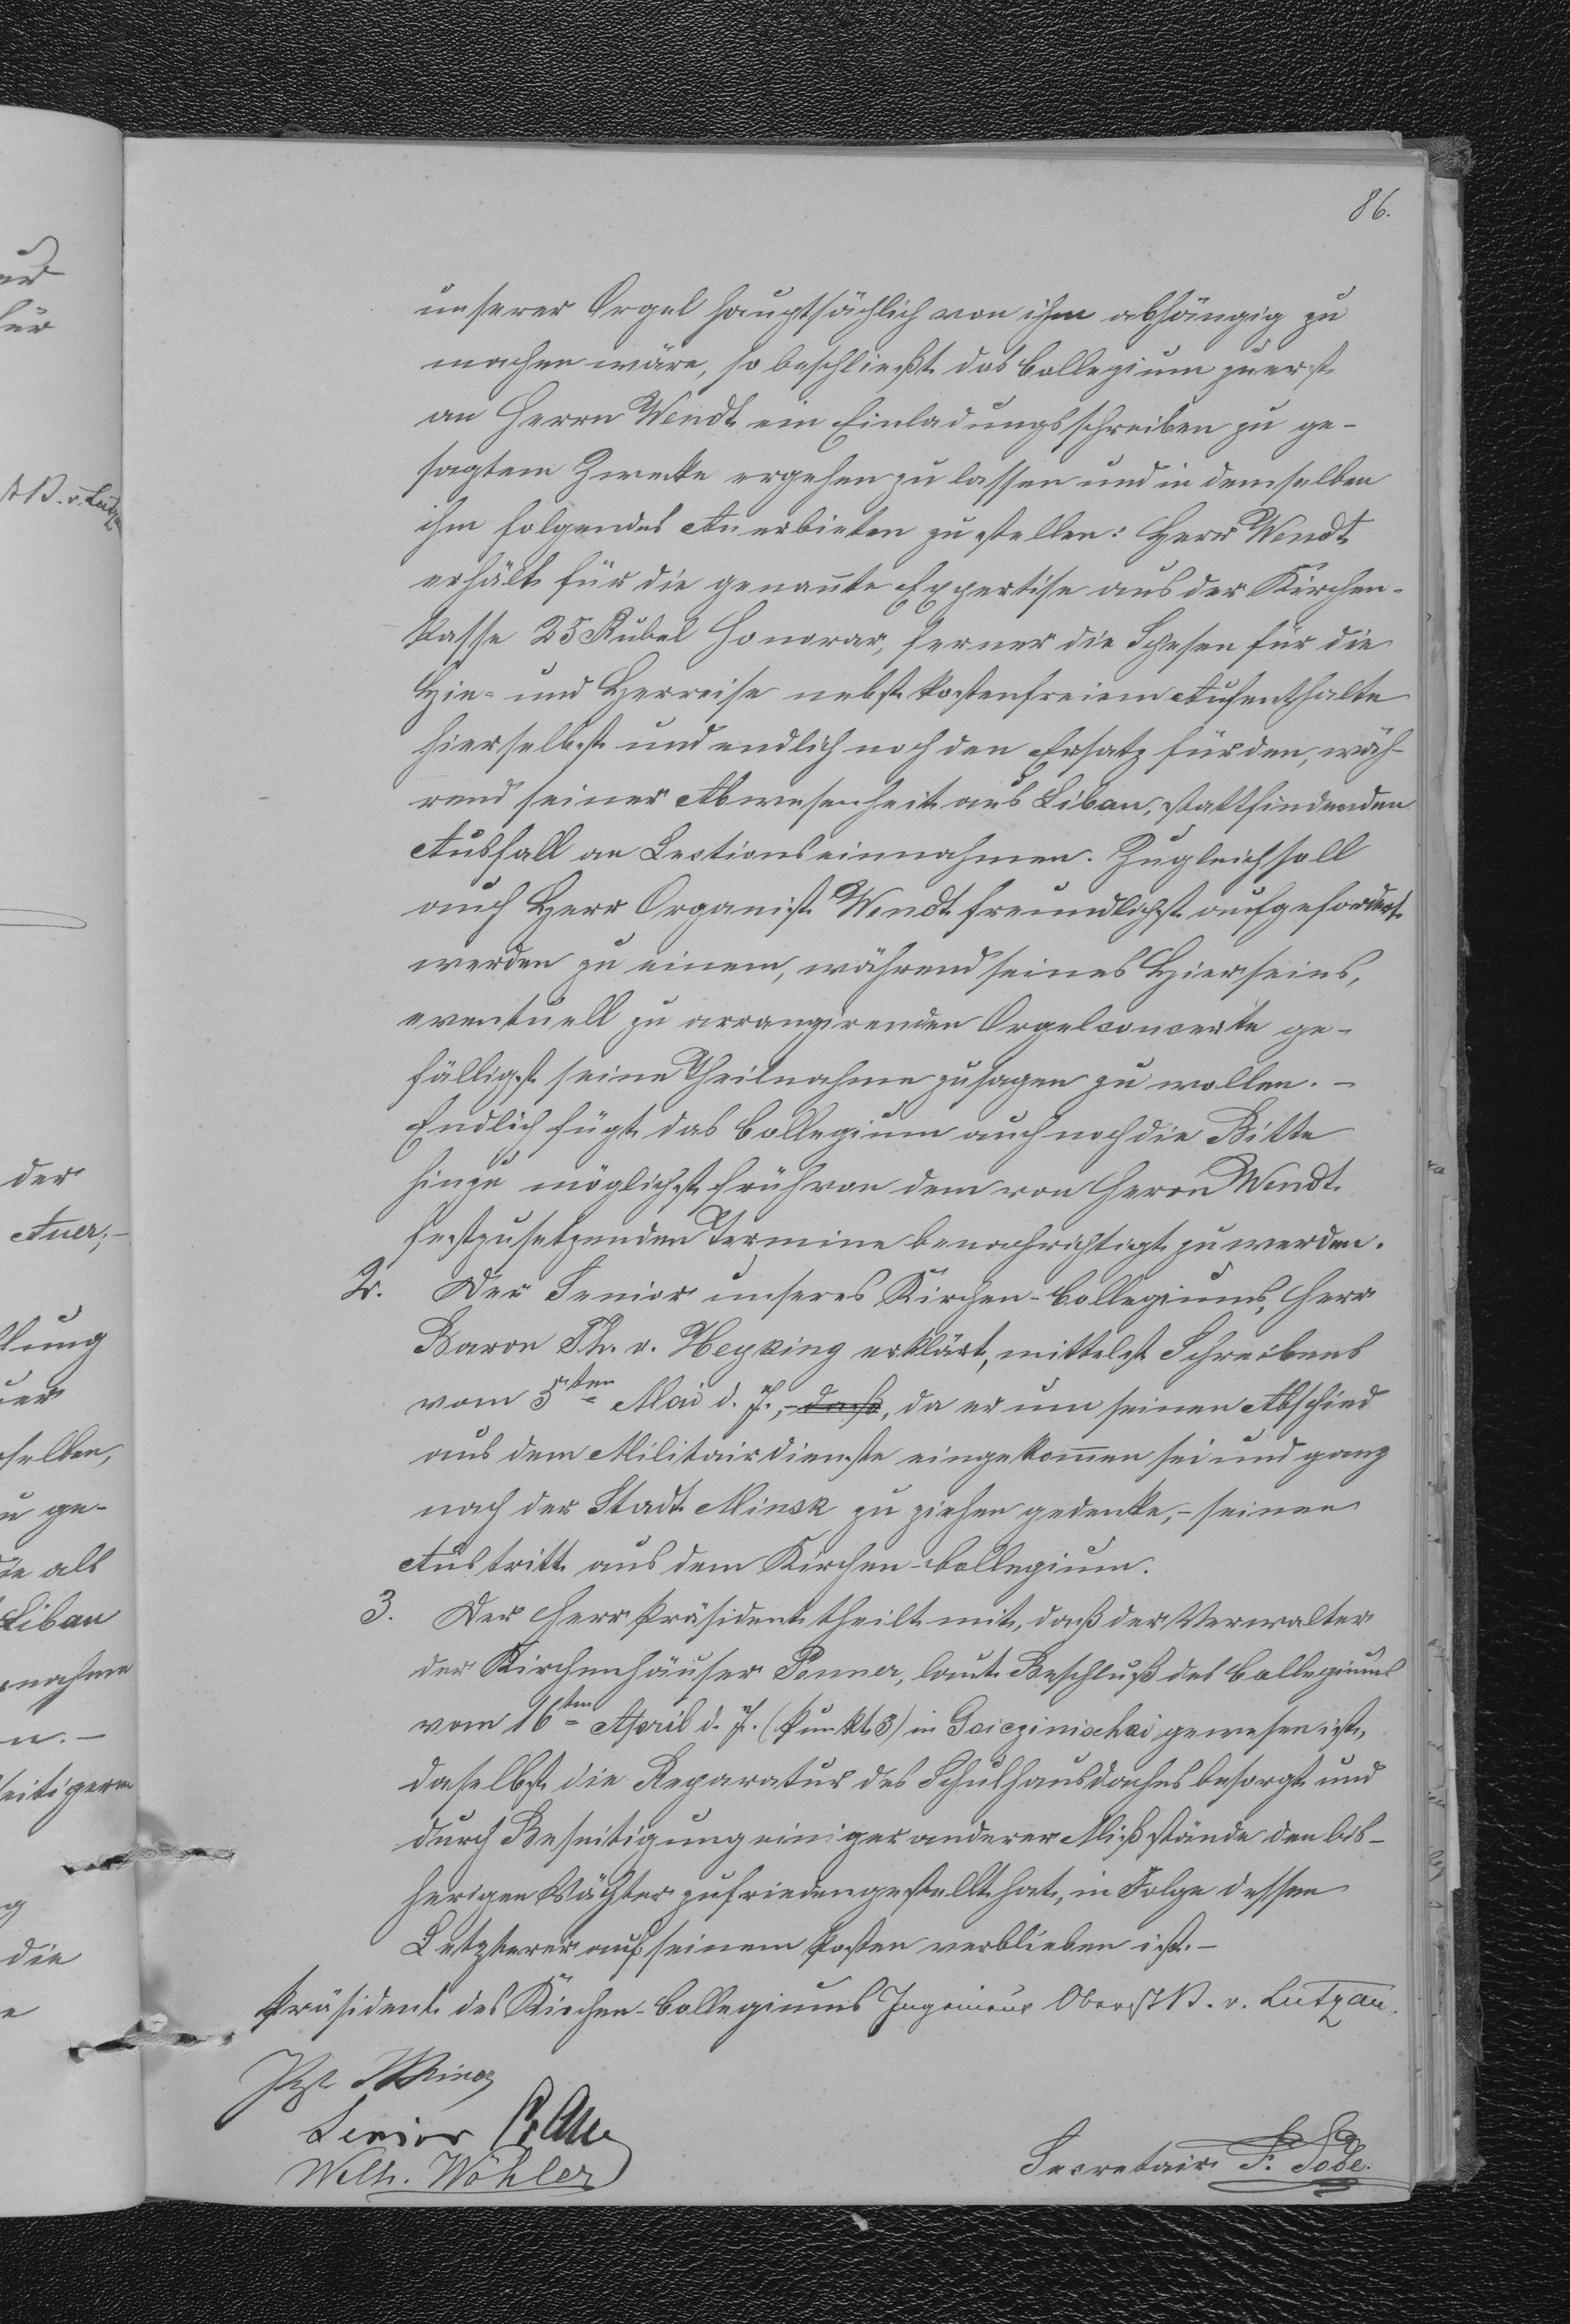 86.
unserer Orgel hauptsächlich von ihm abhängig zu
machen wäre, so beschließt das Collegium zuerst
an Herrn Wendt ein Einladungsschreiben zu ge-
sagtem Zwecke ergehen zu lassen und in demselben
ihm folgendes Anerbieten zu stellen: Herr Wendt
erhält für die genannte Expertise aus der Kirchen-
kasse 25 Rubel Honorar, ferner die Spesen für die
Hin- und Herreise nebst kostenfreiem Aufenthalte
hierselbst und endlich noch den Ersatz für den, wäh-
rend seiner Abwesenheit aus Libau, stattfindenden
Ausfall an Lectionseinnahmen. Zugleich soll
auch Herr Organist Wendt freundlichst aufgefordert
werden zu einem, während seines Hierseins,
eventuell zu arrangirenden Orgelconcerte ge-
fälligst seine Theilnahme zusagen zu wollen. –
Endlich fügt das Collegium auch noch die Bitte
hinzu möglichst früh von dem von Herrn Wendt
festzusetzenden Termine benachrichtigt zu werden.
2. Der Senior unseres Kirchen-Collegiums, Herr
Baron Th. v. Heyking erklärt, mittelst Schreibens
vom 5ten Mai d. J., – daß, da er um seinen Abschied
aus dem Militairdienste eingekommen sei und ganz
nach der Stadt Minsk zu ziehen gedenke, – seinen
Austritt aus dem Kirchen-Collegium.
3. Der Herr Präsident theilt mit, daß der Verwalter
der Kirchenhäuser Penner, laut Beschluß des Collegiums
vom 16ten April d. J. (Punkt 3) in gewesen ist,
daselbst die Reparatur des Schulhausdaches besorgt und
durch Beseitigung einiger anderer Mißstände den bis-
herigen Wächter zufriedengestellt hat, in Folge dessen
Letzterer auf seinem Posten verblieben ist. –
Präsident des Kirchen-Collegiums Ingenieur Oberst v. Lutzau.
Senior
Wilh. Wöhler
Secretair F. Tode.
der
Auer; –
selben,
u ge-
die als
Libau
nahme
n. –
die